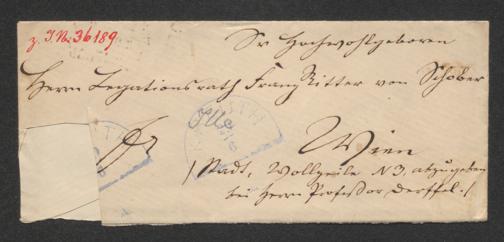 z. J. N. 36189
Sr Hochwohlgeboren
Herrn Legationsrath Franz Ritter von Schober
Wien
/ Stadt, Wollzeile N 3, abzugeben
bei Herrn Professor Derffel. /